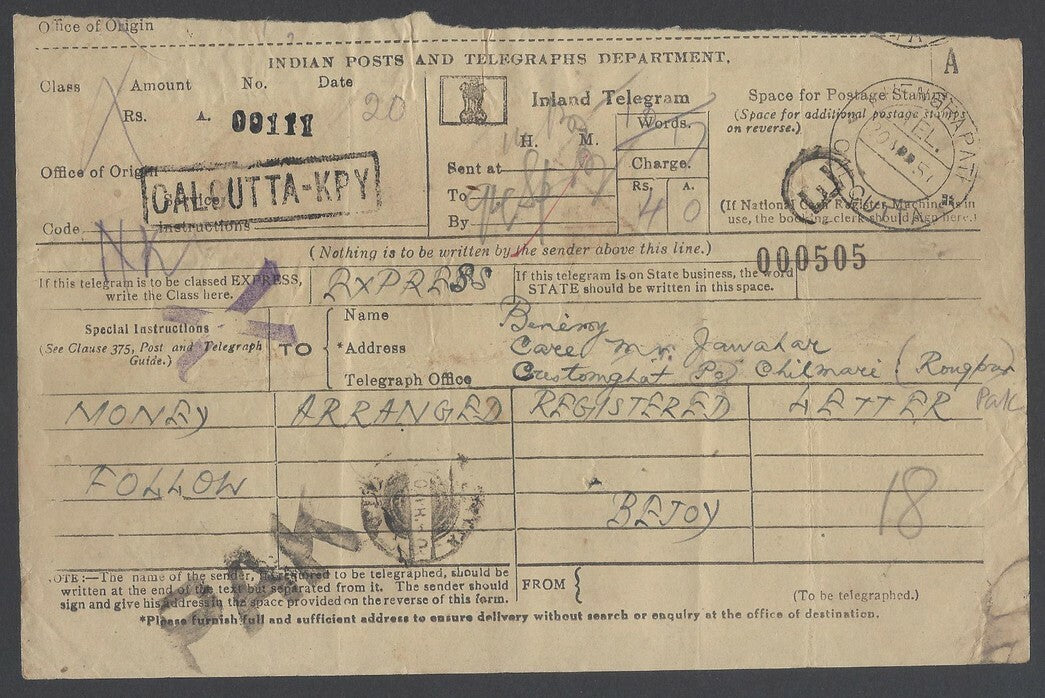 Office of Origin
A
INDIAN POSTS AND TELEGRAPHS DEPARTMENT.
Class Amount No. Date
Rs. A. 00111 20
Inland Telegram
H. M.
Words.
Charge.
Rs. A.
4 0
Sent at
To
By
Space for Postage Stamps
(Space for additional postage stamps
on reverse.)
(If National Cash Register Machine is in
use, the booking clerk should sign here.)
TEL.
Office of Origin
CALCUTTA-KPY
Service
Code Instructions
(Nothing is to be written by the sender above this line.)
000505
If this telegram is to be classed EXPRESS,
write the Class here.
EXPRESS
If this telegram is on State business, the word
STATE should be written in this space.
Special Instructions
(See Clause 375, Post and Telegraph
Guide.)
TO
Name Benémoy
*Address Care Mr. Jawahar
Telegraph Office Customghat Po Chilmari (Rongpur
Pak
MONEY ARRANGED REGISTERED LETTER
FOLLOW
BEJOY
18
NOTE:—The name of the sender, if desired to be telegraphed, should be
written at the end of the text but separated from it. The sender should
sign and give his address in the space provided on the reverse of this form.
FROM
(To be telegraphed.)
*Please furnish full and sufficient address to ensure delivery without search or enquiry at the office of destination.